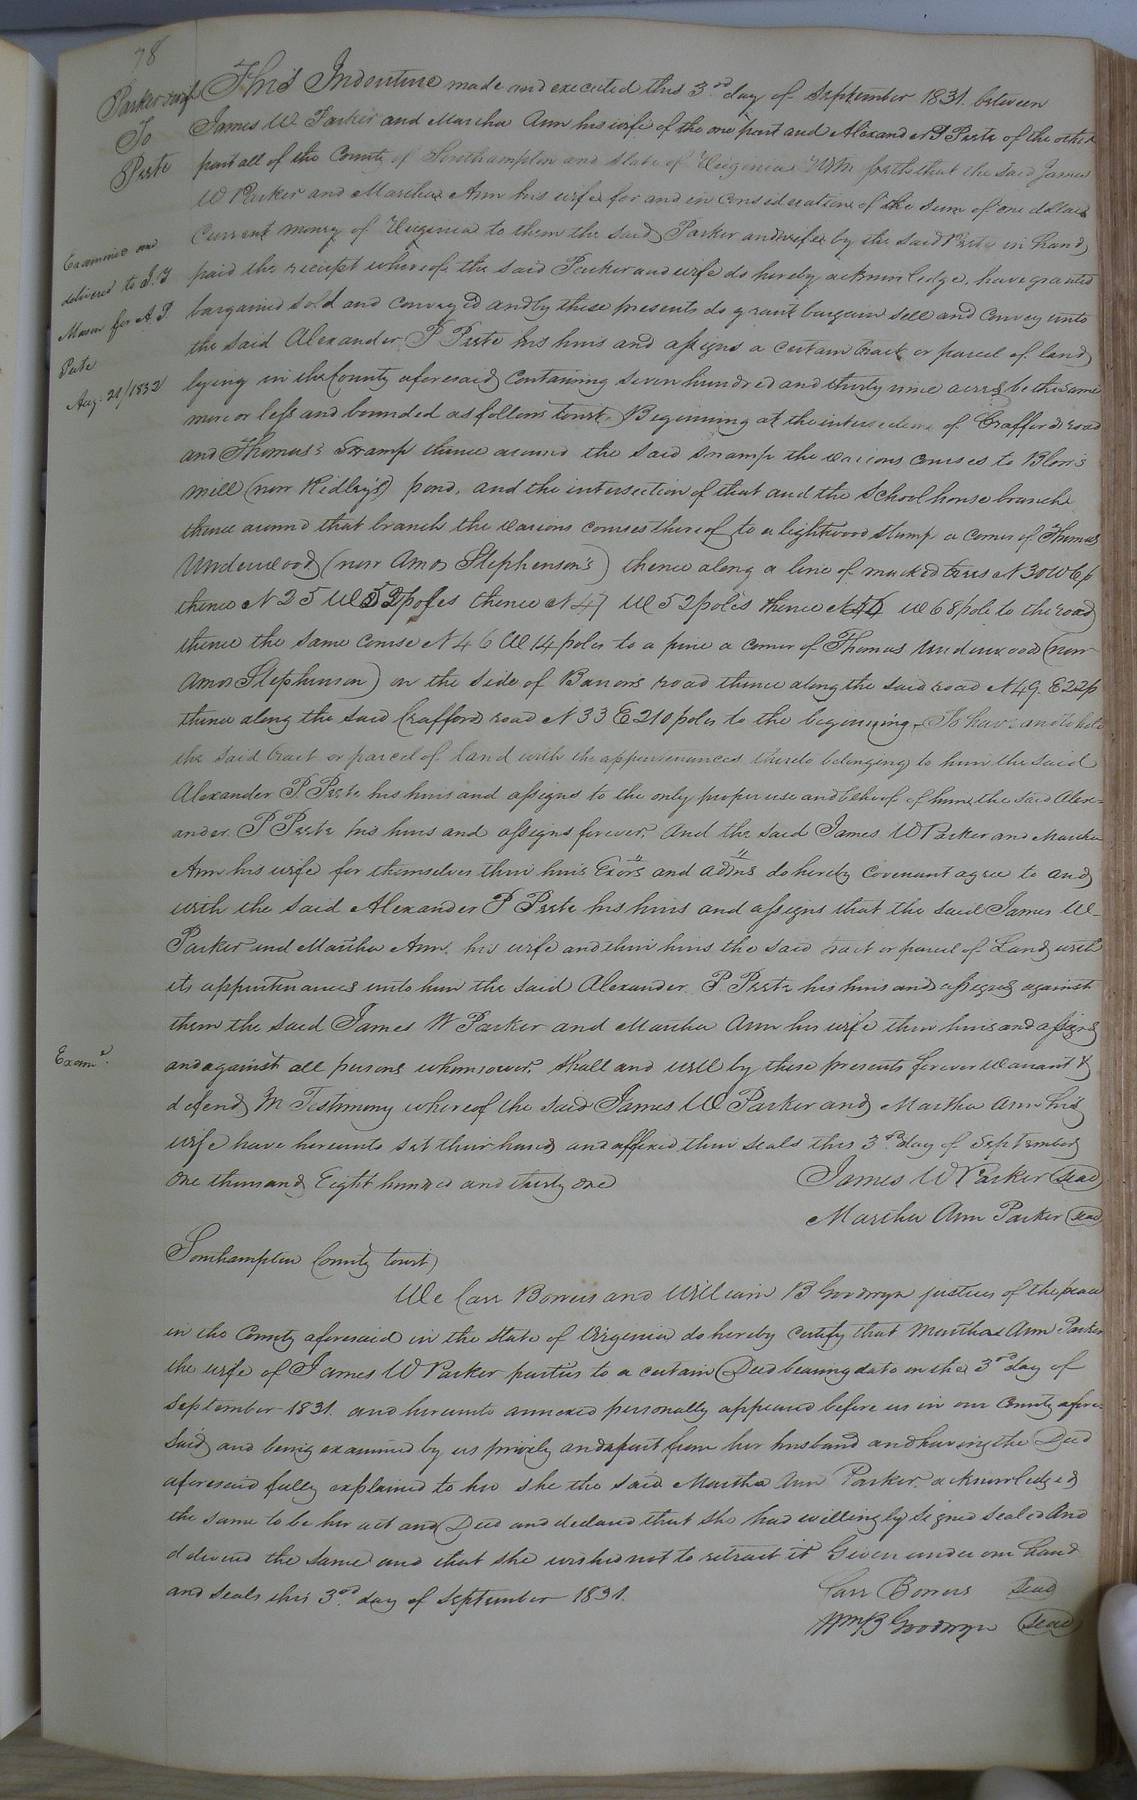 78
Parker & wife
To
Peete
Examined and
delivered to J. T
Mason for A. P.
Peete
Aug. 20/1832
This Indenture made and executed this 3.rd day of September 1831. between
James W Parker and Martha Ann his wife of the one part and Alexander P Peete of the other
part all of the County of Southampton and State of Virginia Witnesseth that the said James
W Parker and Martha Ann his wife for and in Consideration of the Sum of one dollar
Current money of Virginia to them the said Parker and wife by the said Peete in hand
paid the receipt whereof the said Parker and wife do hereby acknowledge, have granted
bargained sold and conveyed and by these presents do grant bargain sell and convey unto
the said Alexander P Peete his heirs and assigns a certain tract or parcel of land
lying in the County aforesaid Containing seven hundred and thirty nine acres be the same
more or less and bounded as follows to wit, Beginning at the intersection of Crafford road
and Thomas's Swamp thence around the said swamp the various Courses to Blow's
mill (now Ridley's) pond, and the intersection of that and the School house branch
thence around that branch the various courses thereof to a lightwood stump a corner of Thomas
Underwood (now Amos Stephenson's) thence along a line of marked trees N 30 W 6p
thence N 25 W 52 poles thence N 47 W 52 poles thence N 44 W 68 pole to the road
thence the same course N 46 W 14 poles to a pine a corner of Thomas Underwood (now
Amos Stephenson) on the side of Barron's road thence along the said road N 49. E 22p
thence along the said Crafford road N 33 E 210 poles to the beginning, To have and to hold
the said tract or parcel of land with the appurtenances thereto belonging to him the said
Alexander P. Peete his heirs and assigns to the only proper use and behoof of him, the said Alex=
ander P Peete his heirs and assigns forever. And the said James W Parker and Martha
Ann his wife for themselves their heirs Exors and admrs do hereby Covenant agree to and
with the said Alexander P Peete his heirs and assigns that the said James W
Parker and Martha Ann his wife and their heirs the said tract or parcel of Land with
its appurtenances unto him the said Alexander P. Peete his heirs and assigns against
them the said James W Parker and Martha Ann his wife their heirs and assigns
and against all persons whomsoever, shall and will by these presents forever warrant &
defend In Testimony whereof the said James W Parker and Martha Ann his
wife have hereunto set their hands and affixed their seals this 3.rd day of September
One thousand Eight hundred and thirty one
Examd.
James W Parker (Seal)
Martha Ann Parker (Seal)
Southampton County to wit)
We Carr Bowers and William B Goodwyn justices of the peace
in the County aforesaid in the state of Virginia do hereby certify that Martha Ann Parker
the wife of James W Parker parties to a certain Deed bearing date on the 3rd day of
September 1831. and hereunto annexed personally appeared before us in our County afore
said and being examined by us privily and apart from her husband and having the Deed
aforesaid fully explained to her she the said Martha Ann Parker acknowledged
the same to be her act and Deed and declared that she had willingly signed sealed and
delivered the same and that she wished not to retract it Given under our hand
and seals this 3.rd day of September 1831.
Carr Bowers Seal
Wm B Goodwyn (Seal)